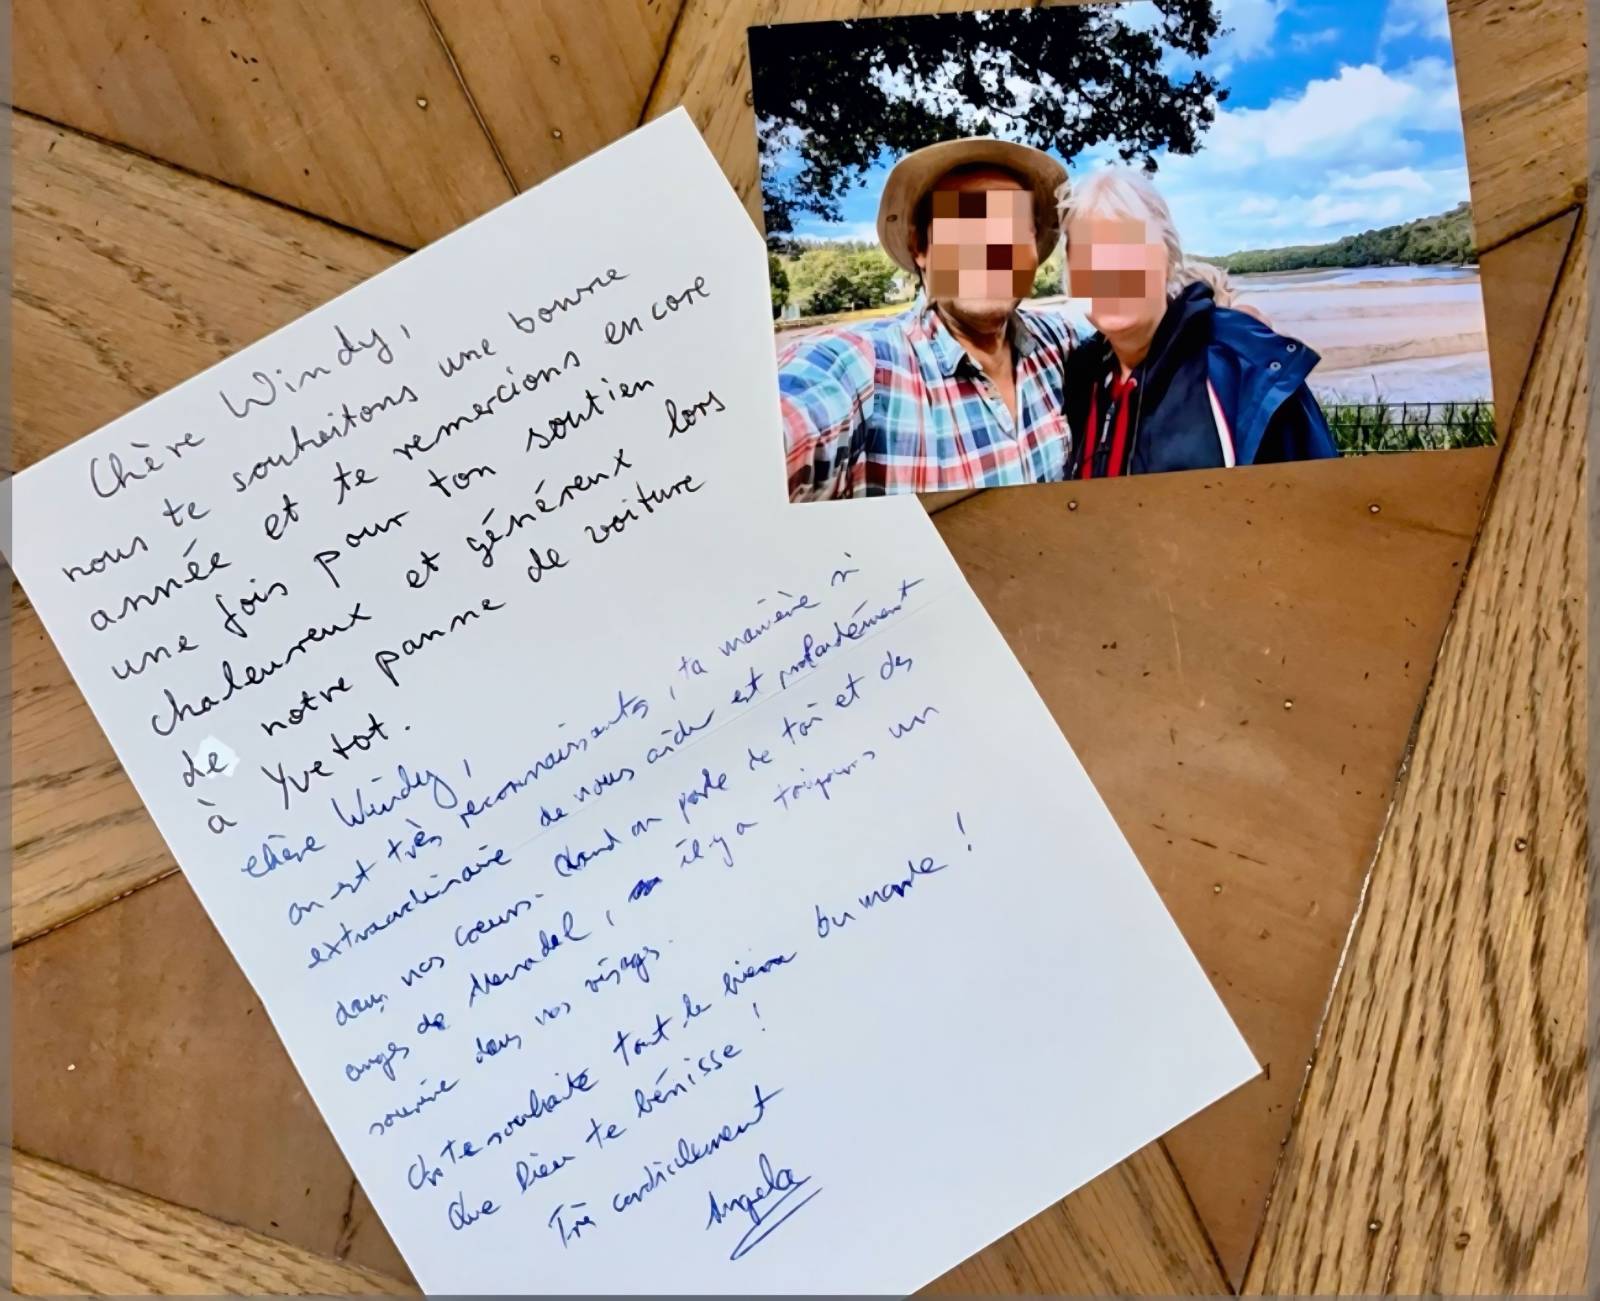 Chère Windy,
nous te souhaitons une bonne
année et te remercions encore
une fois pour ton soutien
chaleureux et généreux lors
de notre panne de voiture
à Yvetot.
chère Windy,
on est très reconnaissantes, ta manière si
extraordinaire de nous aider est profondément
dans nos cœurs. Quand on parle de toi et des
anges de, il y a toujours un
sourire dans nos visages.
On te souhaite tout le bien du monde !
Que Dieu te bénisse !
Très cordialement
Angela